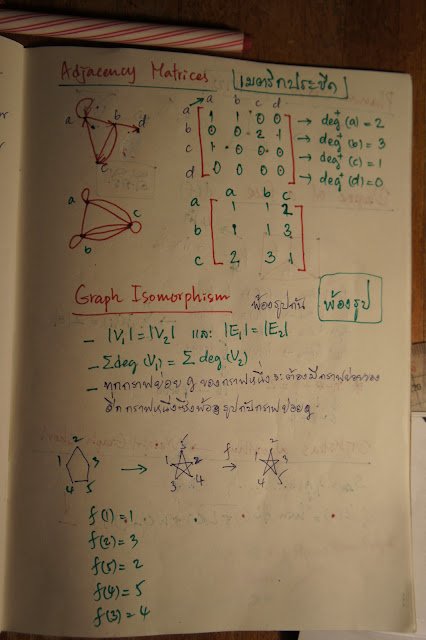 Adjacency Matrices [เมตริกประชิด]
a b c d
a 1 1 0 0 → deg⁺(a) = 2
b 0 0 2 1 → deg⁺(b) = 3
c 1 0 0 0 → deg⁺(c) = 1
d 0 0 0 0 → deg⁺(d) = 0
a b d
c
a b c
a 1 1 2
b 1 1 3
c 2 3 1
a
c
b
Graph Isomorphism พ้องรูปกัน พ้องรูป
- |V₁| = |V₂| และ |E₁| = |E₂|
- Σdeg (V₁) = Σ deg (V₂)
- ทุกกราฟย่อย ๆ ของกราฟหนึ่ง จะต้องมีกราฟย่อยของ
อีกกราฟหนึ่งซึ่งพ้องรูปกับกราฟย่อย ๆ
2
1 3
4 5
→
5
1 2
3 4
f
→
2
1 3
4 5
f(1) = 1
f(2) = 3
f(5) = 2
f(4) = 5
f(3) = 4